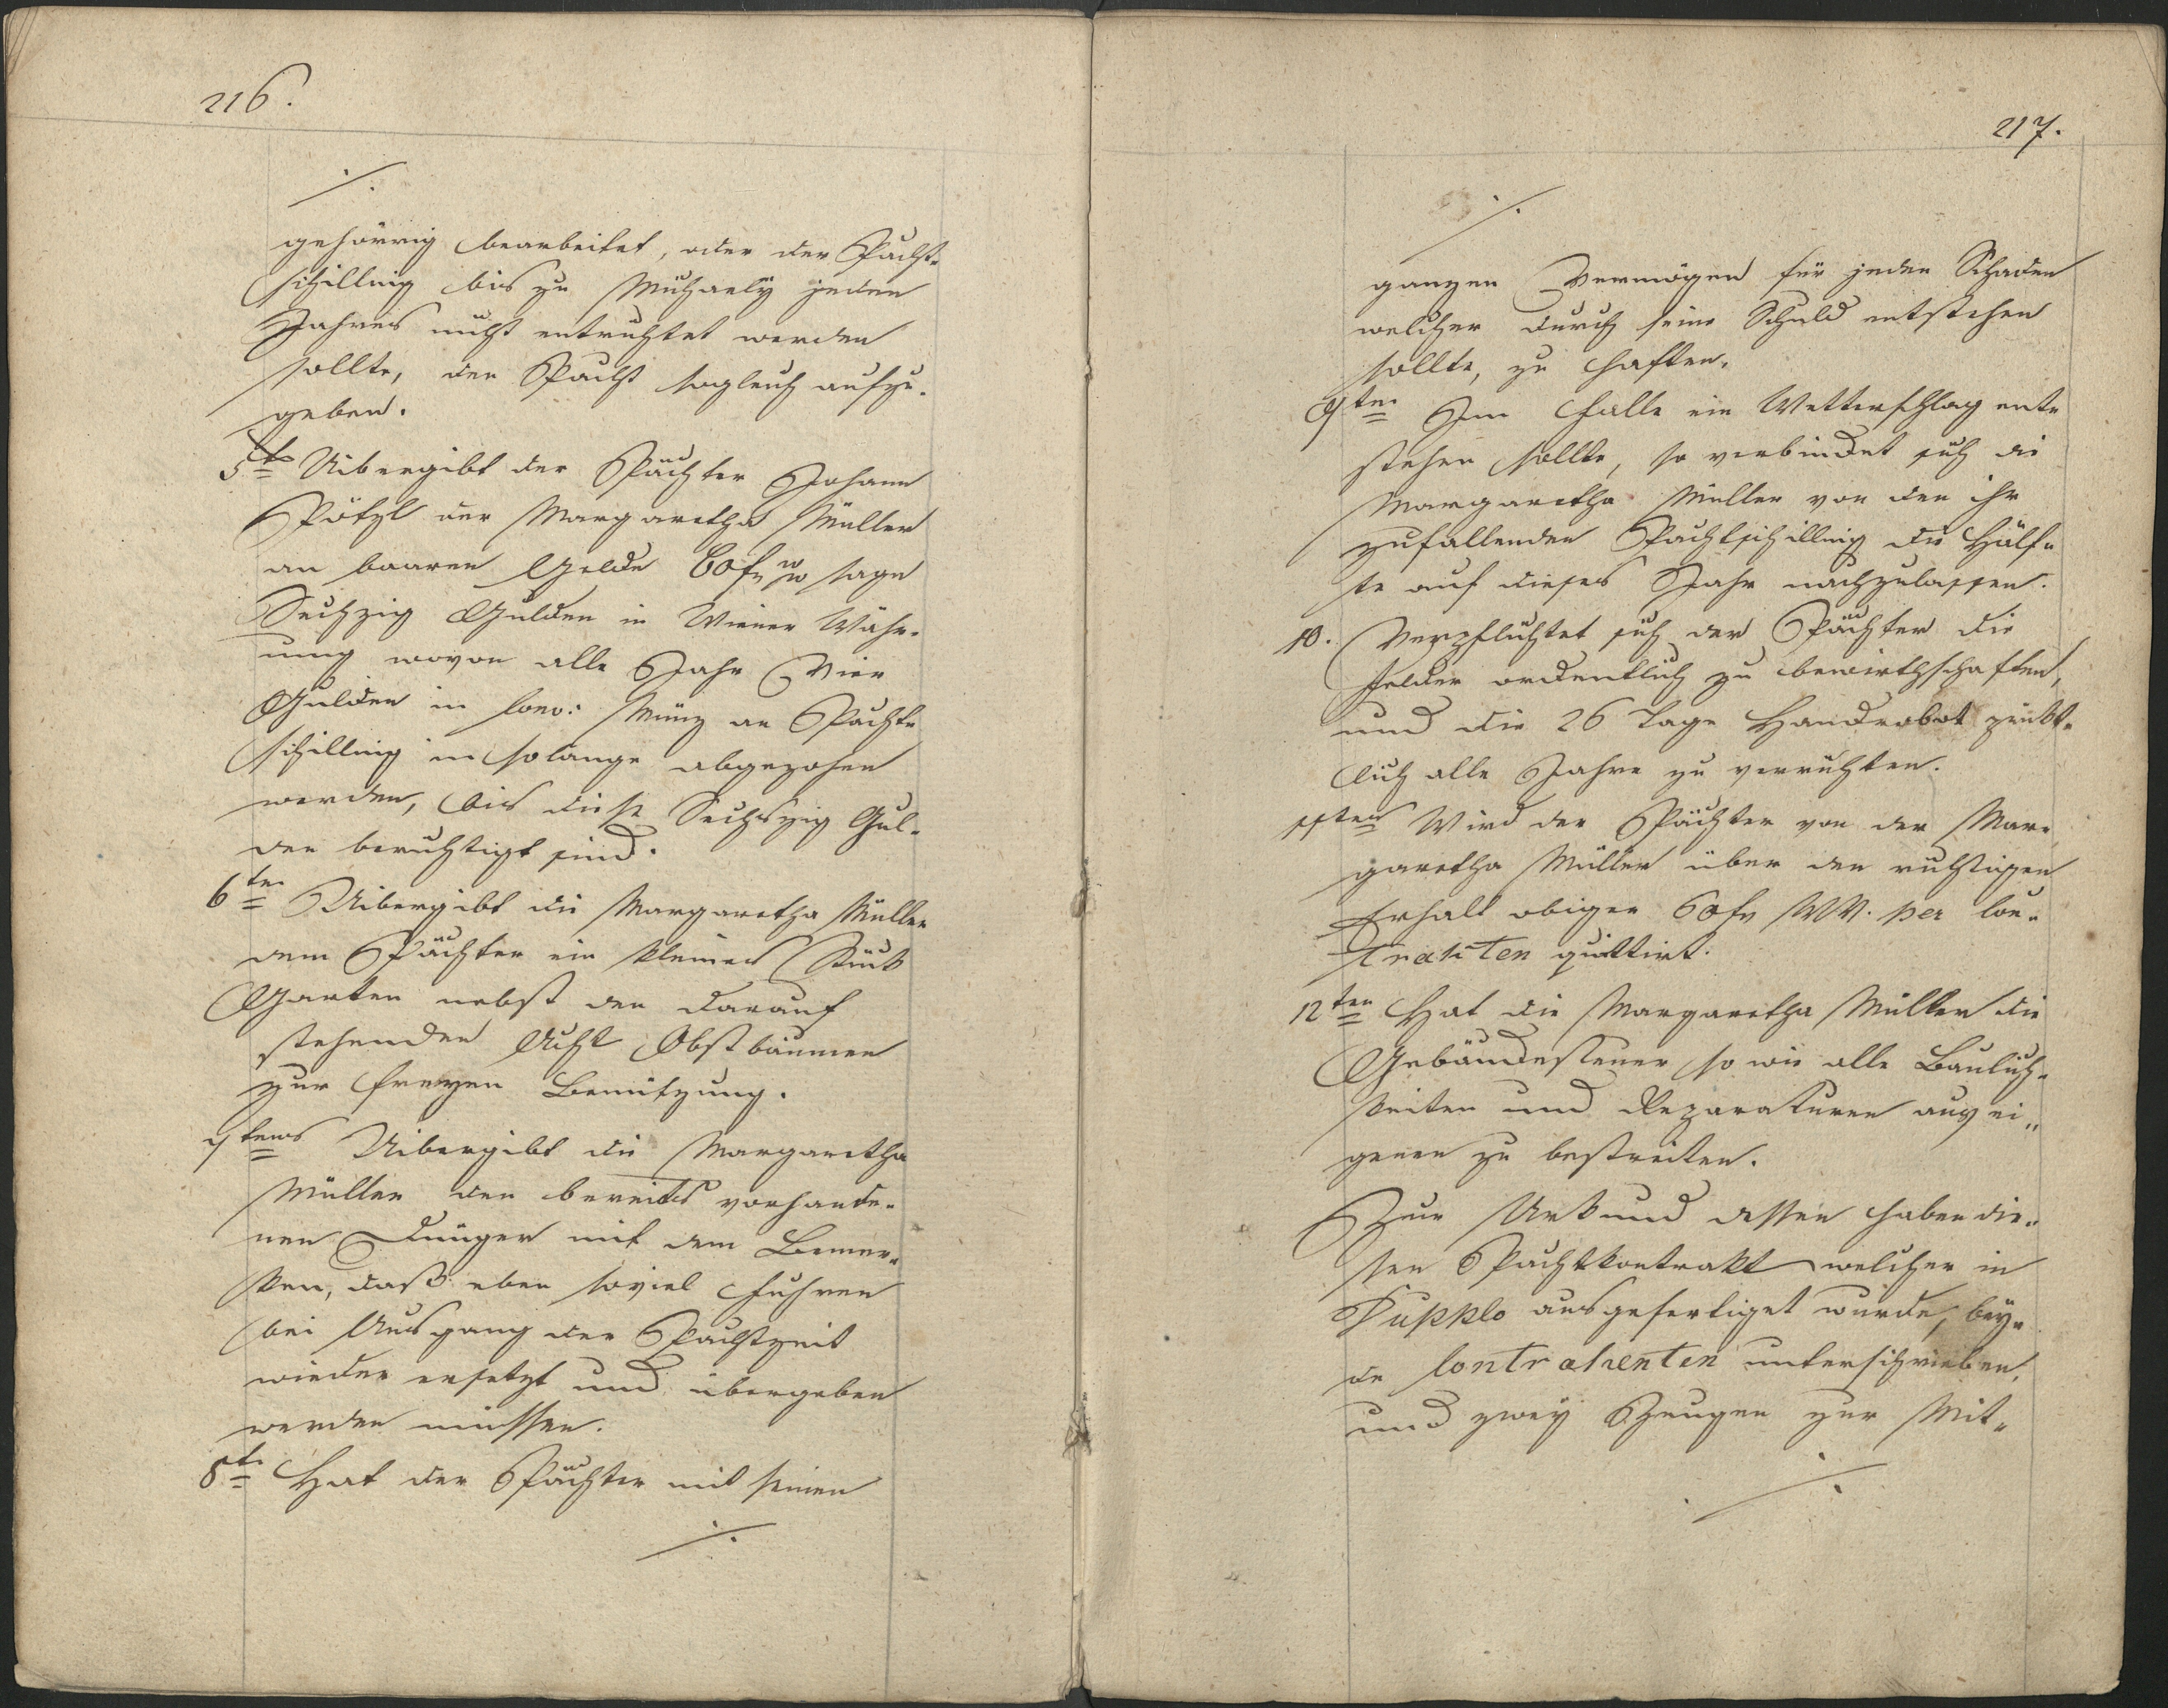 216.
./.
gehörrig bearbeitet, oder der Pacht-
schilling bis zu Michaely jeden
Jahres nicht entrichtet werden
sollte, den Pacht sogleich aufzu-
geben.
5te Uibergibt der Pächter Johann
Pötzl der Margaretha Müller
an baaren Gelde 60 fr WW sage
Sechzig Gulden in Wiener Währ-
ung wovon alle Jahr Vier
Gulden in Conv: Münz an Pacht-
schilling in solange abgezohen
werden, bis diese Sechszig Gul-
den berichtigt sind.
6ten Uibergibt die Margaretha Müller
dem Pächter ein kleines Stück
Garten nebst den darauf
stehenden Acht Obstbäumen
zur freyen Benützung.
7tens Uibergibt die Margaretha
Müller den bereits vorhande-
nen Dünger mit dem Bemer-
ken, daß eben soviel Fuhren
bei Ausgang der Pachtzeit
wieder ersetzt und übergeben
werden müssen.
8te Hat der Pächter mit seinen
./.
217.
./.
ganzen Vermögen für jeden Schaden
welcher durch seine Schuld entstehen
sollte, zu haften.
9ten Im Falle ein Wetterschlag ent-
stehen sollte, so verbindet sich die
Margaretha Müller von den ihr
zufallenden Pachtschilling die Hälf-
te auf dieses Jahr nachzulassen.
10. Verpflichtet sich der Pächter die
Felder ordentlich zu bewirthschaften,
und die 26 Tage Handrobot pünkt-
lich alle Jahre zu verrichten.
11tens Wird der Pächter von der Mar-
garetha Müller über den richtigen
Erhalt obiger 60 fr WW. per Con-
trahten quittirt.
12ten Hat die Margaretha Müller die
Gebäudesteuer so wie alle Baulich-
keiten und Reparaturen aus ei-
genen zu bestreiten.
Zur Urkund dessen haben die-
sen Pachtkontrakt welcher in
Dupplo ausgefertiget wurde, bey-
de Contrahenten unterschrieben,
und zwey Zeugen zur Mit-
./.